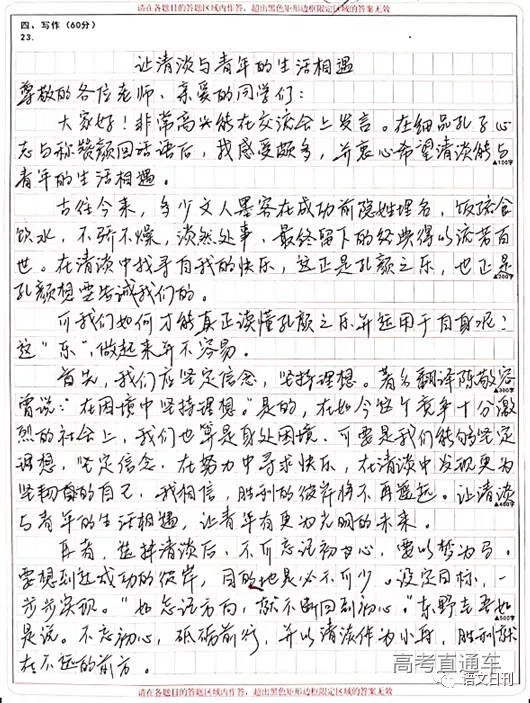 请在各题目的答题区域内作答，超出黑色矩形边框限定区域的答案无效
四、写作（60分）
23.
让清淡与青年的生活相遇
尊敬的各位老师、亲爱的同学们：
大家好！非常高兴能在交流会上发言。在细品孔子心
志与称赞颜回话语后，我感受颇多，并衷心希望清淡能与
青年的生活相遇。
▲100字
古往今来，多少文人墨客在成功前隐姓埋名，饭疏食
饮水，不骄不燥，淡然处事，最终留下的经典得以流芳百
世。在清淡中找寻自我的快乐，这正是孔颜之乐，也正是
▲200字
孔颜想要告诫我们的。
可我们如何才能真正读懂孔颜之乐并运用于自身呢？
这“乐”，做起来并不容易。
首先，我们应坚定信念，坚持理想。著名翻译陈敬容
▲300字
曾说：“在困境中坚持理想。”是的，在如今这个竞争十分激
烈的社会上，我们也算是身处困境，可要是我们能够坚定
理想，坚定信念，在努力中寻求快乐，在清淡中发现更为
坚韧的自己，我相信，胜利的彼岸将不再遥远。让清淡
▲400字
与青年的生活相遇，让青年有更为光明的未来。
再者，选择清淡后，不可忘记初心，要以梦为马。
要想到达成功的彼岸，目的地是必不可少。设定目标，一
步步实现。“如忘记方向，就不断回到初心。”东野圭吾如
▲500字
是说。不忘初心，砥砺前行，并以清淡作为小舟，胜利就
在不远的前方。
高考直通车
语文日刊
请在各题目的答题区域内作答，超出黑色矩形边框限定区域的答案无效